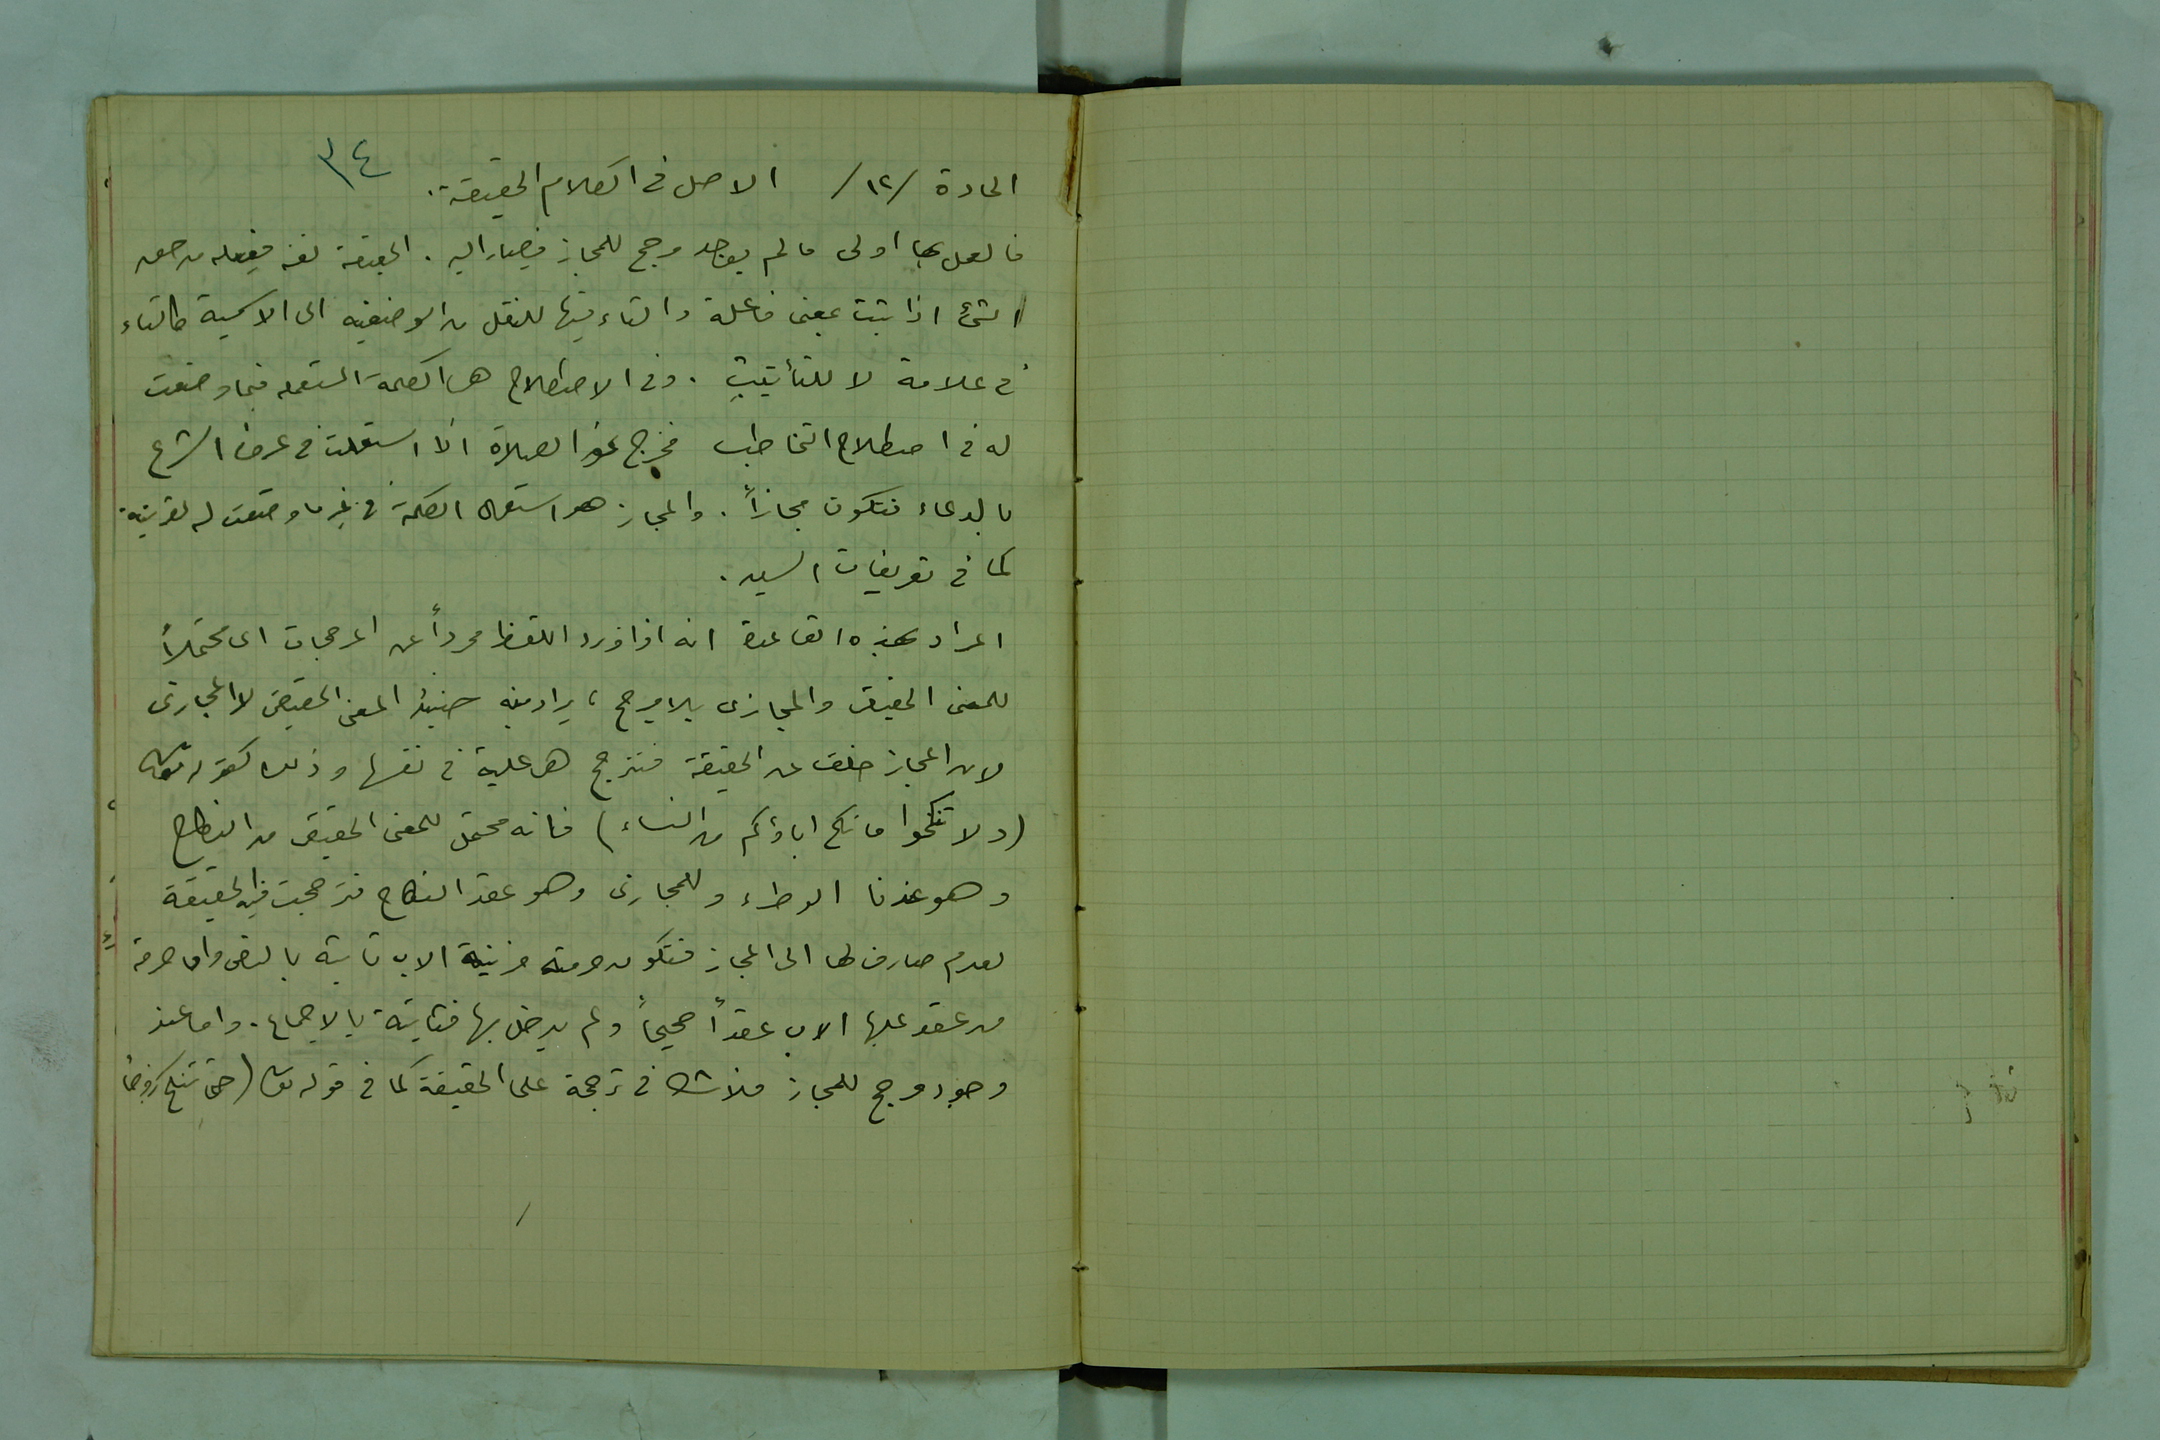 ٣٤
المادة /١٢/ الاصل في الكلام الحقيقة.
فالعمل بها اولى ما لم يوجد مرجح للمجاز فيصار اليه. الحقيقة لغة فعيلة من حق
الشئ اذا ثبت بمعنى فاعلة والتاء فيها للنقل من الوصفية الى الاسمية كالتاء
في علامة لا للتأنيث. وفي الاصطلاح هي الكلمة المستعملة فيما وضعت
له في اصطلاح التخاطب فخرج نحو الصلاة اذا استعملت في عرف الشرع
بالدعاء فتكون مجازاً. والمجاز هو استعمال الكلمة في غير ما وضعت له لقرينة.
كما في تعريفات السيد.
المراد بهذه القاعدة انه اذا ورد اللفظ مجرداً عن المرجحات اى محتملاً
للمعنى الحقيقي والمجازى بلا مرجح، يراد منه حينئذ المعنى الحقيقي لا المجازى
لان المجاز خلف عن الحقيقة فتترجح هي عليه في نفسها وذلك كقوله تعالى
(ولا تنكحوا ما نكح اباؤكم من النساء) فانه محتمل للمعنى الحقيقي من النكاح
وهو عندنا الوطء وللمجازى وهو عقد النكاح فترجحت فيه الحقيقة
لعدم صارف لها الى المجاز فتكون حرمة مزنية الاب ثابتة بالنص واما حرمة
من عقد عليها الاب عقداً صحيحاً ولم يدخل بها فثابتة بالاجماع. واما عند
وجود مرجح للمجاز فلا شك في ترجحه على الحقيقة كما في قوله تعالى (حتى تنكح زوجاً